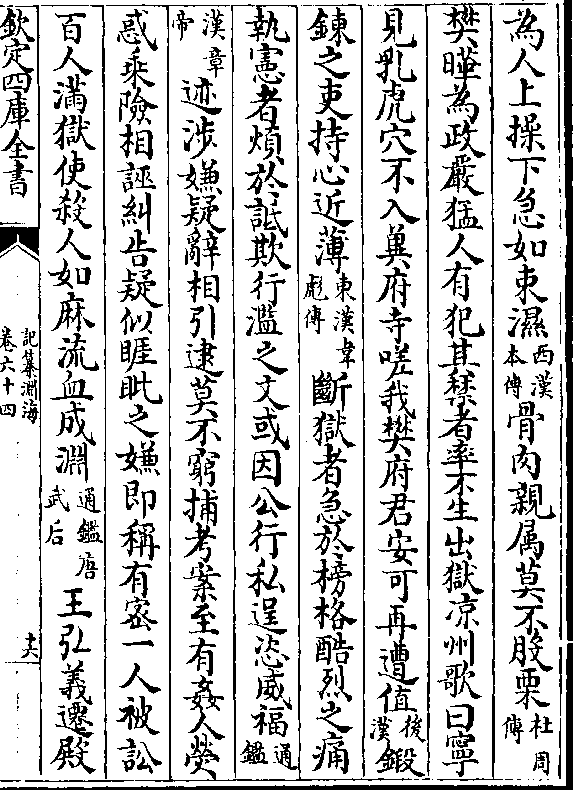 為人上操下急如束濕西漢本傳骨肉親属莫不股栗杜周傳
樊曄為政嚴猛人有犯其禁者率不生出獄凉州歌曰寧
見乳虎穴不入冀府寺嗟我樊府君安可再遭值後漢鍛
鍊之吏持心近薄東漢韋彪傳斷獄者急於榜格酷烈之痛
執憲者煩於詆欺行濫之文或因公行私逞恣威福通鑑
漢章帝迹涉嫌疑辭相引逮莫不窮捕考案至有姦人熒
惑乗險相誣糾告疑似睚眦之嫌即稱有宻一人被訟
百人滿獄使殺人如麻流血成淵通鑑唐武后王弘義遷殿
欽定四庫全書
記纂淵海
卷六十四
十六